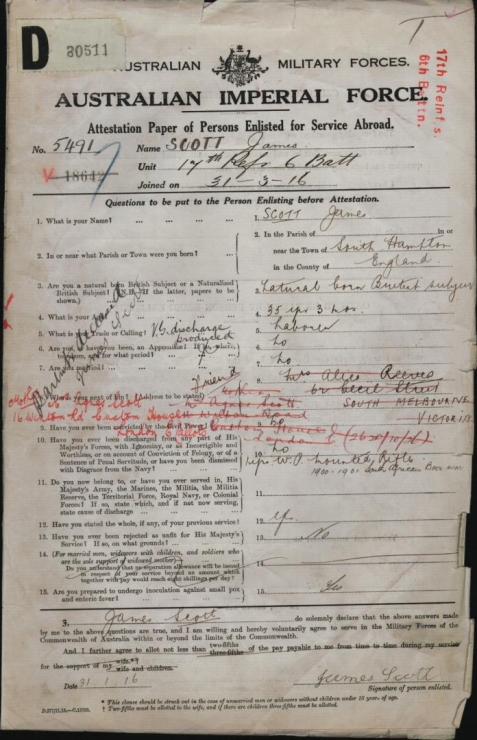 D
30511
AUSTRALIAN MILITARY FORCES.
AUSTRALIAN IMPERIAL FORCE.
17th Reinf.s.
6th Battn.
Attestation Paper of Persons Enlisted for Service Abroad.
No. 5491 Name SCOTT James
18642 Unit 17th Refs 6 Batt
Joined on 31-3-16
Questions to be put to the Person Enlisting before Attestation.
1. What is your Name? ... ... ... 1. SCOTT James
2. In or near what Parish or Town were you born? ... 2. In the Parish of in or
near the Town of South Hampton
in the County of England
3. Are you a natural born British Subject or a Naturalized
British Subject? (N.B.—If the latter, papers to be
shown.) 3. Natural born British subject
4. What is your Age? 4. 35 yrs 3 mos.
5. What is your Trade or Calling? V.G. discharge 5. Labourer
produced
6. Are you, or have you been, an Apprentice? If so, where,
to whom, and for what period? 6. No
7. Are you married? 7. No
8. Who is your next of kin? (Address to be stated) Friend 8. Mrs Alice Reeves
62 Cecil Street
SOUTH MELBOURNE
VICTORIA
Mother
9. Have you ever been convicted by the Civil Power? 9. No
10. Have you ever been discharged from any part of His
Majesty's Forces, with Ignominy, or as Incorrigible and
Worthless, or on account of Conviction of Felony, or of a
Sentence of Penal Servitude, or have you been dismissed
with Disgrace from the Navy? 10. No
11. Do you now belong to, or have you ever served in, His
Majesty's Army, the Marines, the Militia, the Militia
Reserve, the Territorial Force, Royal Navy, or Colonial
Forces? If so, state which, and if not now serving,
state cause of discharge 11. W.O. Mounted Rifles
1900-1901 South African Boer war
12. Have you stated the whole, if any, of your previous service? 12. Yes
13. Have you ever been rejected as unfit for His Majesty's
Service? If so, on what grounds? 13. No
14. (For married men, widowers with children, and soldiers who
are the sole support of widowed mother)
Do you understand that no separation allowance will be issued
in respect of your service beyond an amount which
together with pay would reach eight shillings per day? 14.
15. Are you prepared to undergo inoculation against small pox
and enteric fever? 15. Yes
I, James Scott do solemnly declare that the above answers made
by me to the above questions are true, and I am willing and hereby voluntarily agree to serve in the Military Forces of the
Commonwealth of Australia within or beyond the limits of the Commonwealth.
And I further agree to allot not less than two-fifths three-fifths of the pay payable to me from time to time during my service
for the support of my wife. wife and children.
Date 31 1 16 James Scott
Signature of person enlisted.
* This clause should be struck out in the case of unmarried men or widowers without children under 18 years of age.
† Two-fifths must be allotted to the wife, and if there are children three-fifths must be allotted.